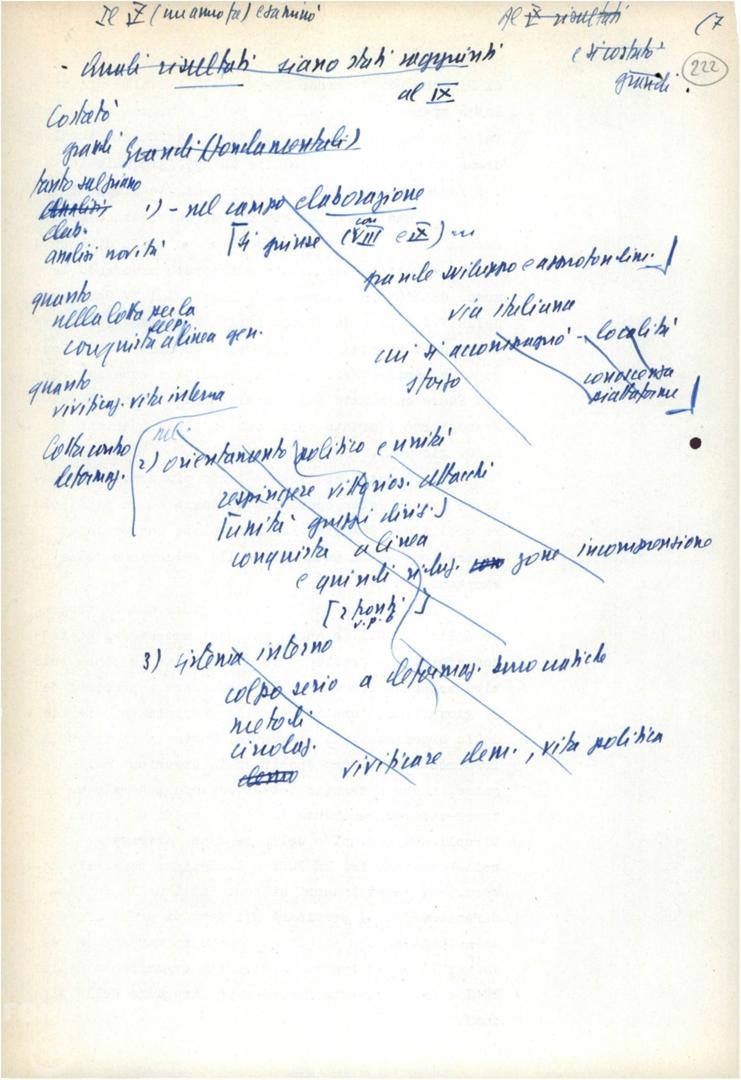 Il X (un anno fa) esaminò
Al X risultati (7
e si costatò 222
grandi.
- Quali risultati siano stati raggiunti
al IX
Costatò
grandi Grandi (fondamentali)
tanto sul piano
Analisi 1) - nel campo elaborazione
elab. [Si giunse con (VIII e IX)
analisi novità
grande sviluppo e approfondim.]
quanto via italiana
nella lotta per la
conquista alinea gen.
cui si accompagnò - località
sforzo conoscenza
piattaforme]
quanto
vivificaz. vita interna
lotta contro nel
deformaz. 2) orientamento politico e unità
respingere vittorios. attacchi
[unità gruppi dirig.]
conquista a linea
e quindi riduz. con zone incomprensione
[2 fronti]
3) sistema interno
colpo serio a deformaz. burocratiche
metodi
circolaz.
demo vivificare dem., vita politica